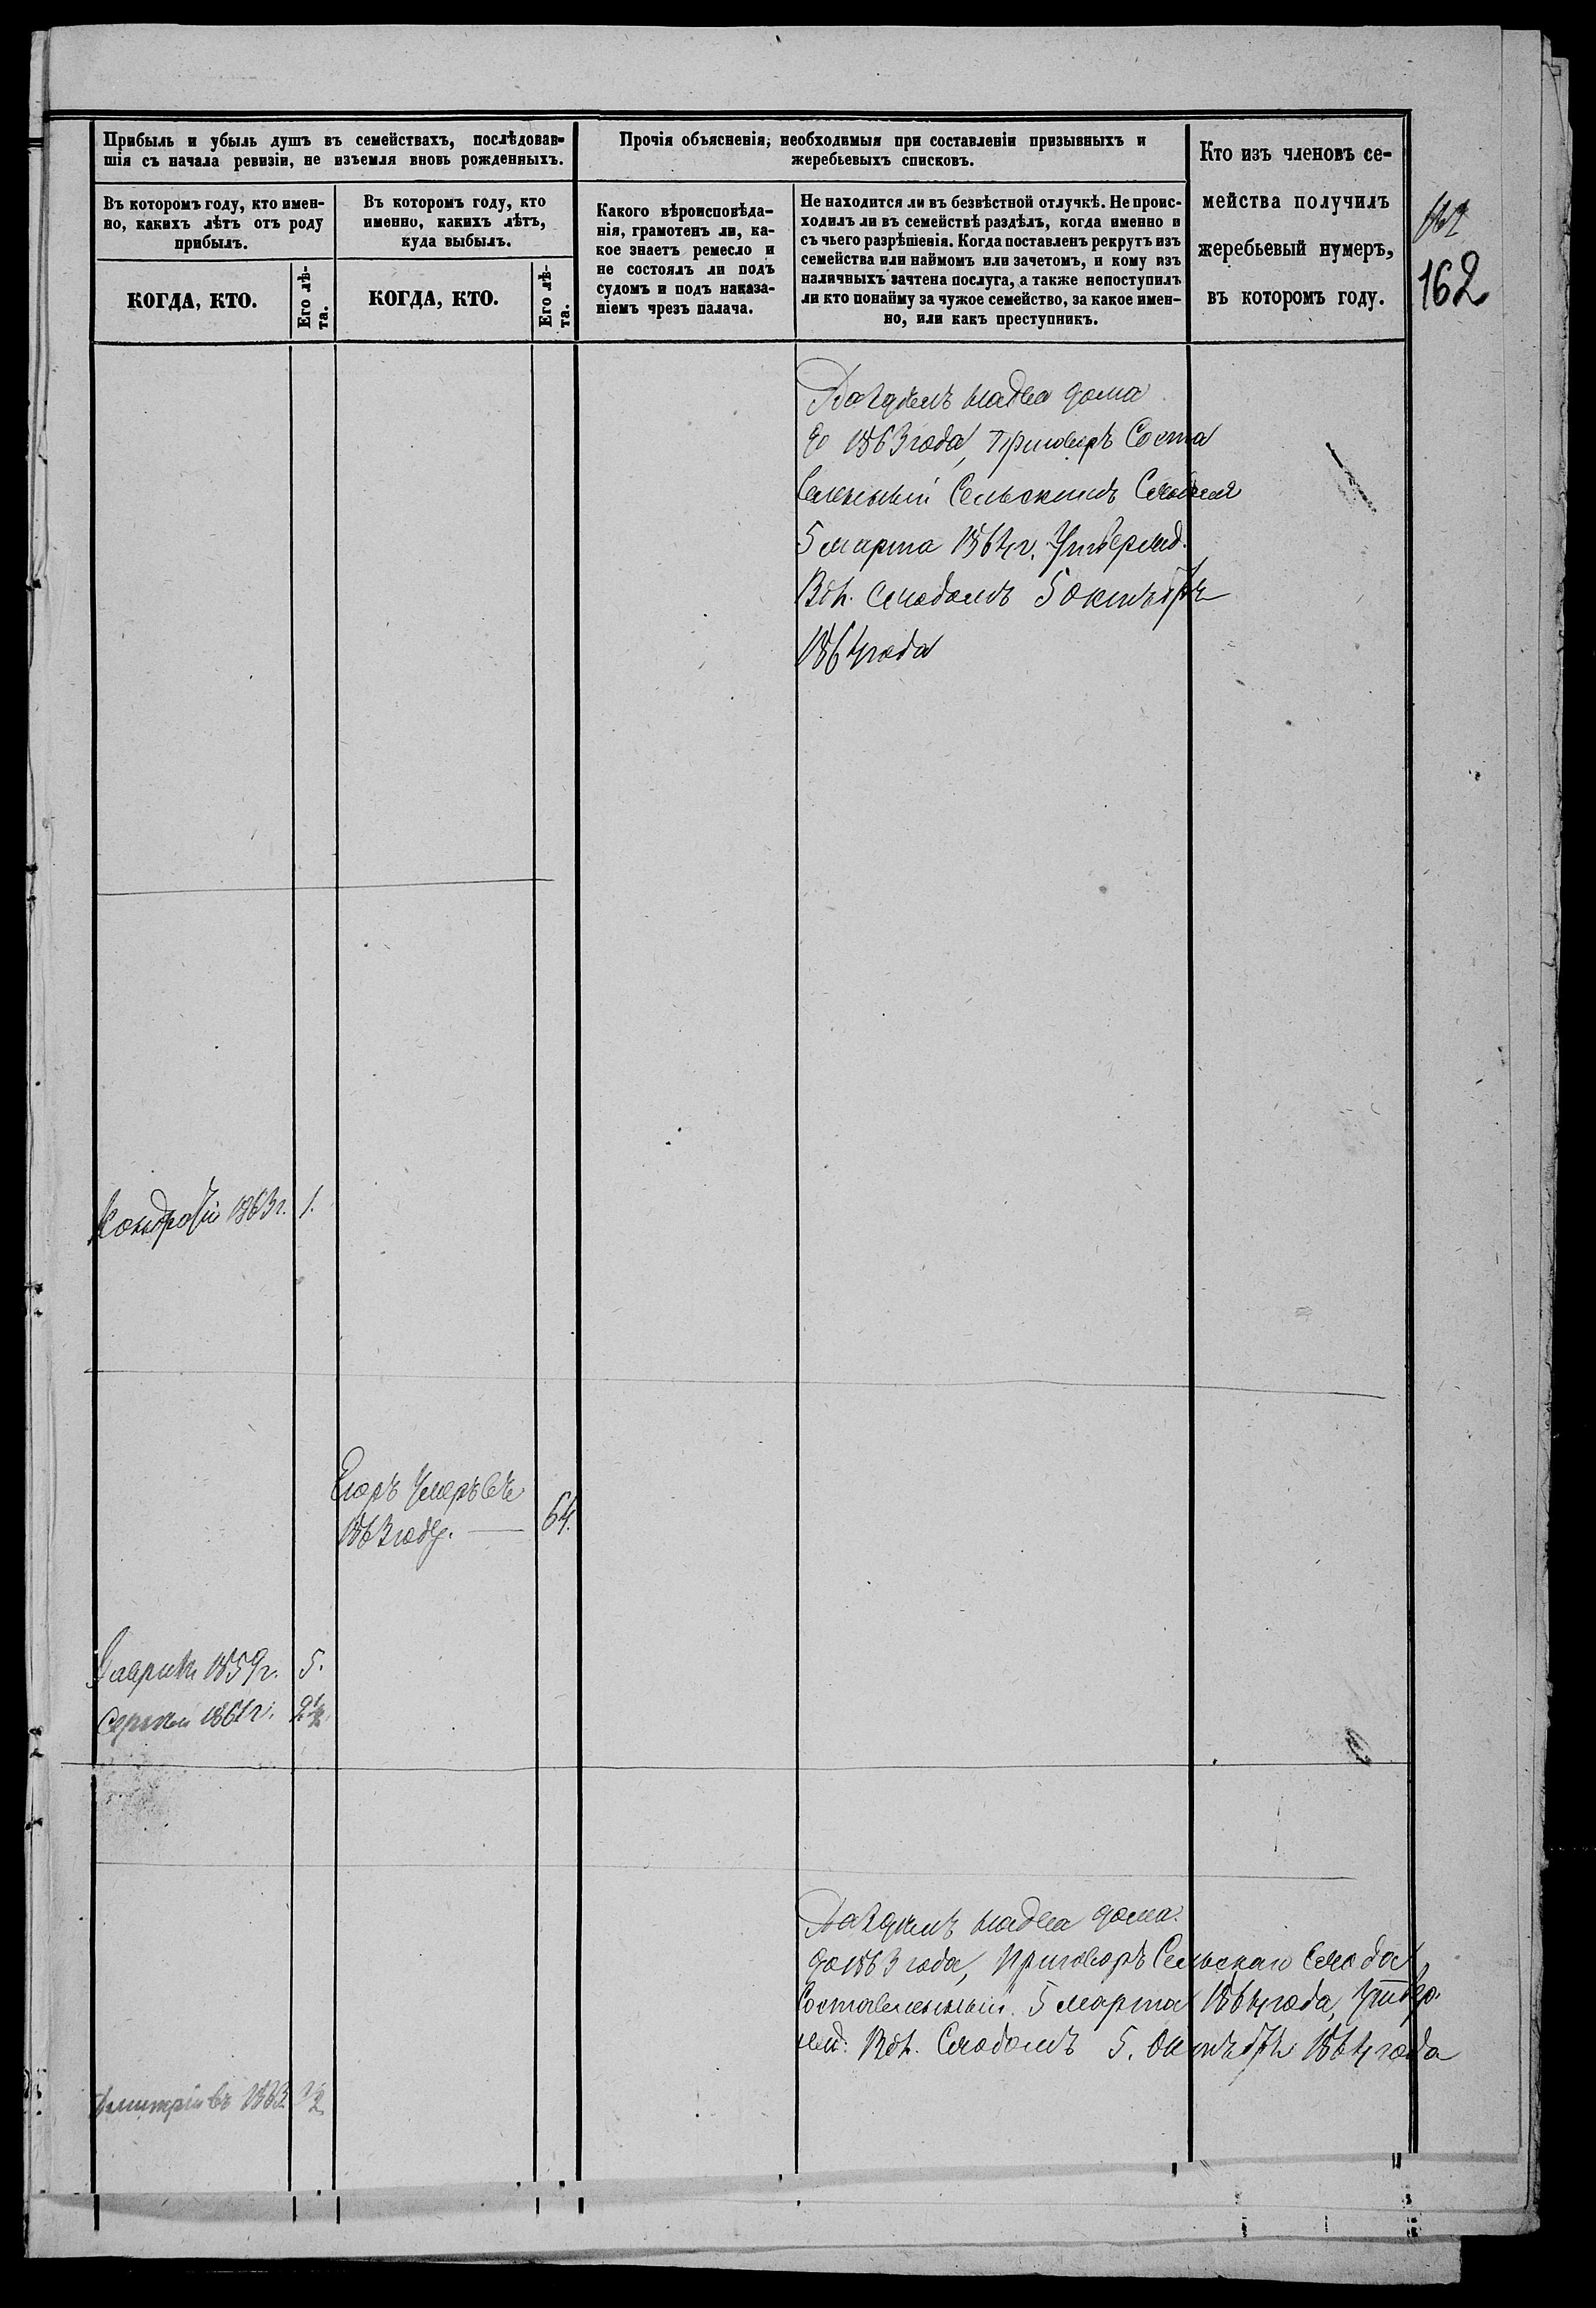 Прибыль и убыль душъ въ семействахъ, послѣдовав-
шія съ начала ревизіи, не изъемля вновь рожденныхъ.
Прочія объясненія, необходимыя при составленіи призывныхъ и
жеребьевыхъ списковъ.
Кто изъ членовъ се-
мейства получилъ
жеребьевый нумеръ,
въ которомъ году.
Въ которомъ году, кто имен-
но, какихъ лѣтъ отъ роду
прибылъ.
Въ которомъ году, кто
именно, какихъ лѣтъ,
куда выбылъ.
Какого вѣроисповѣда-
нія, грамотенъ ли, ка-
кое знаетъ ремесло и
не состоялъ ли подъ
судомъ и подъ наказа-
ніемъ чрезъ палача.
Не находится ли въ безвѣстной отлучкѣ. Не проис-
ходилъ ли въ семействѣ раздѣлъ, когда именно и
съ чьего разрѣшенія. Когда поставленъ рекрутъ изъ
семейства или наймомъ или зачетомъ, и кому изъ
наличныхъ зачтена послуга, а также непоступилъ
ли кто понайму за чужое семейство, за какое имен-
но, или какъ преступникъ.
КОГДА, КТО.
Его лѣ-
та.
КОГДА, КТО.
Его лѣ-
та.
162
162
Раздѣлъ на два дома
до 1863 года, приговоръ Соста
вленный Сельскимъ Сходомъ
5 марта 1864 г. Утвержд.
Вол. сходомъ 5 октября
1864 года
Кондратій 1863 г. 1.
Егоръ Умеръ въ
1863 году. — 64.
Гаврила 1859 г. 5.
Сергей 1861 г. 2½
Раздѣлъ на два дома
до 1863 года, Приговоръ Сельскаго Схода
Составленный 5 марта 1864 года, Утвер-
жд. Вол. Сходомъ 5. Октября 1864 года
Дмитрій въ 1863 ½